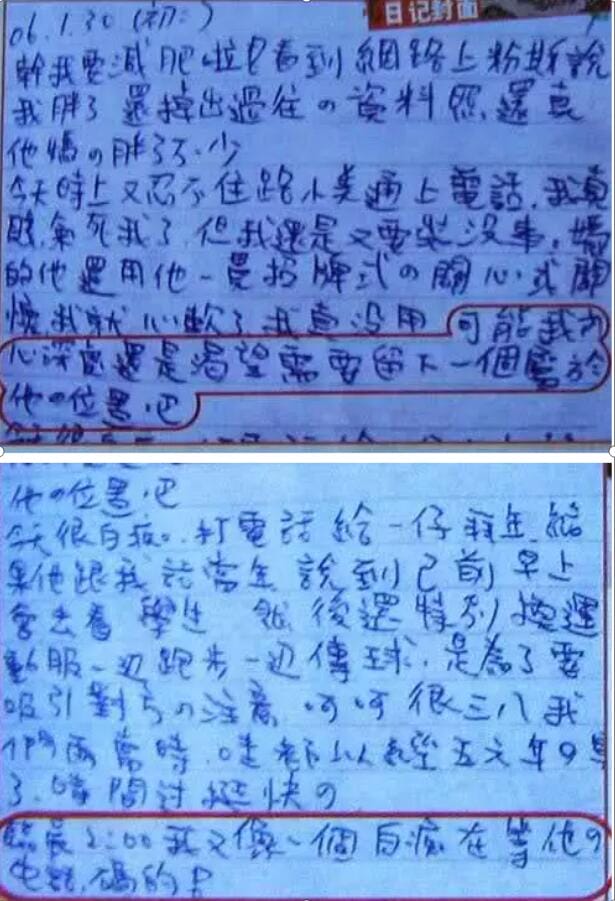 日记封面
06.1.30 (初二)
幹我要減肥啦P看到網路上粉斯說
我胖了 還撐出過往の資料照,還真
他媽の胖了不少
今天時上又忍不住跟小美通上電話,我真
氣死我了,但我還是又要裝沒事,媽
的他還用他一貫招牌式の關心或關
懷我就心軟了,我真沒用 可能我內
心深處還是渴望需要留下一個屬於
他の位置吧
他の位置吧
今天很白痴。打電話給一仔拜年,結
果他跟我話當年 說到已前早上
會去看學生 然後還特別換運
動服一边跑步一边傳球,是為了要
吸引對方の注意 呵呵很三八我
們兩當時,哇都以經五六年の事
了,時間过挺快の
臨晨2:00我又像一個白痴在等他の
电話,碼的P